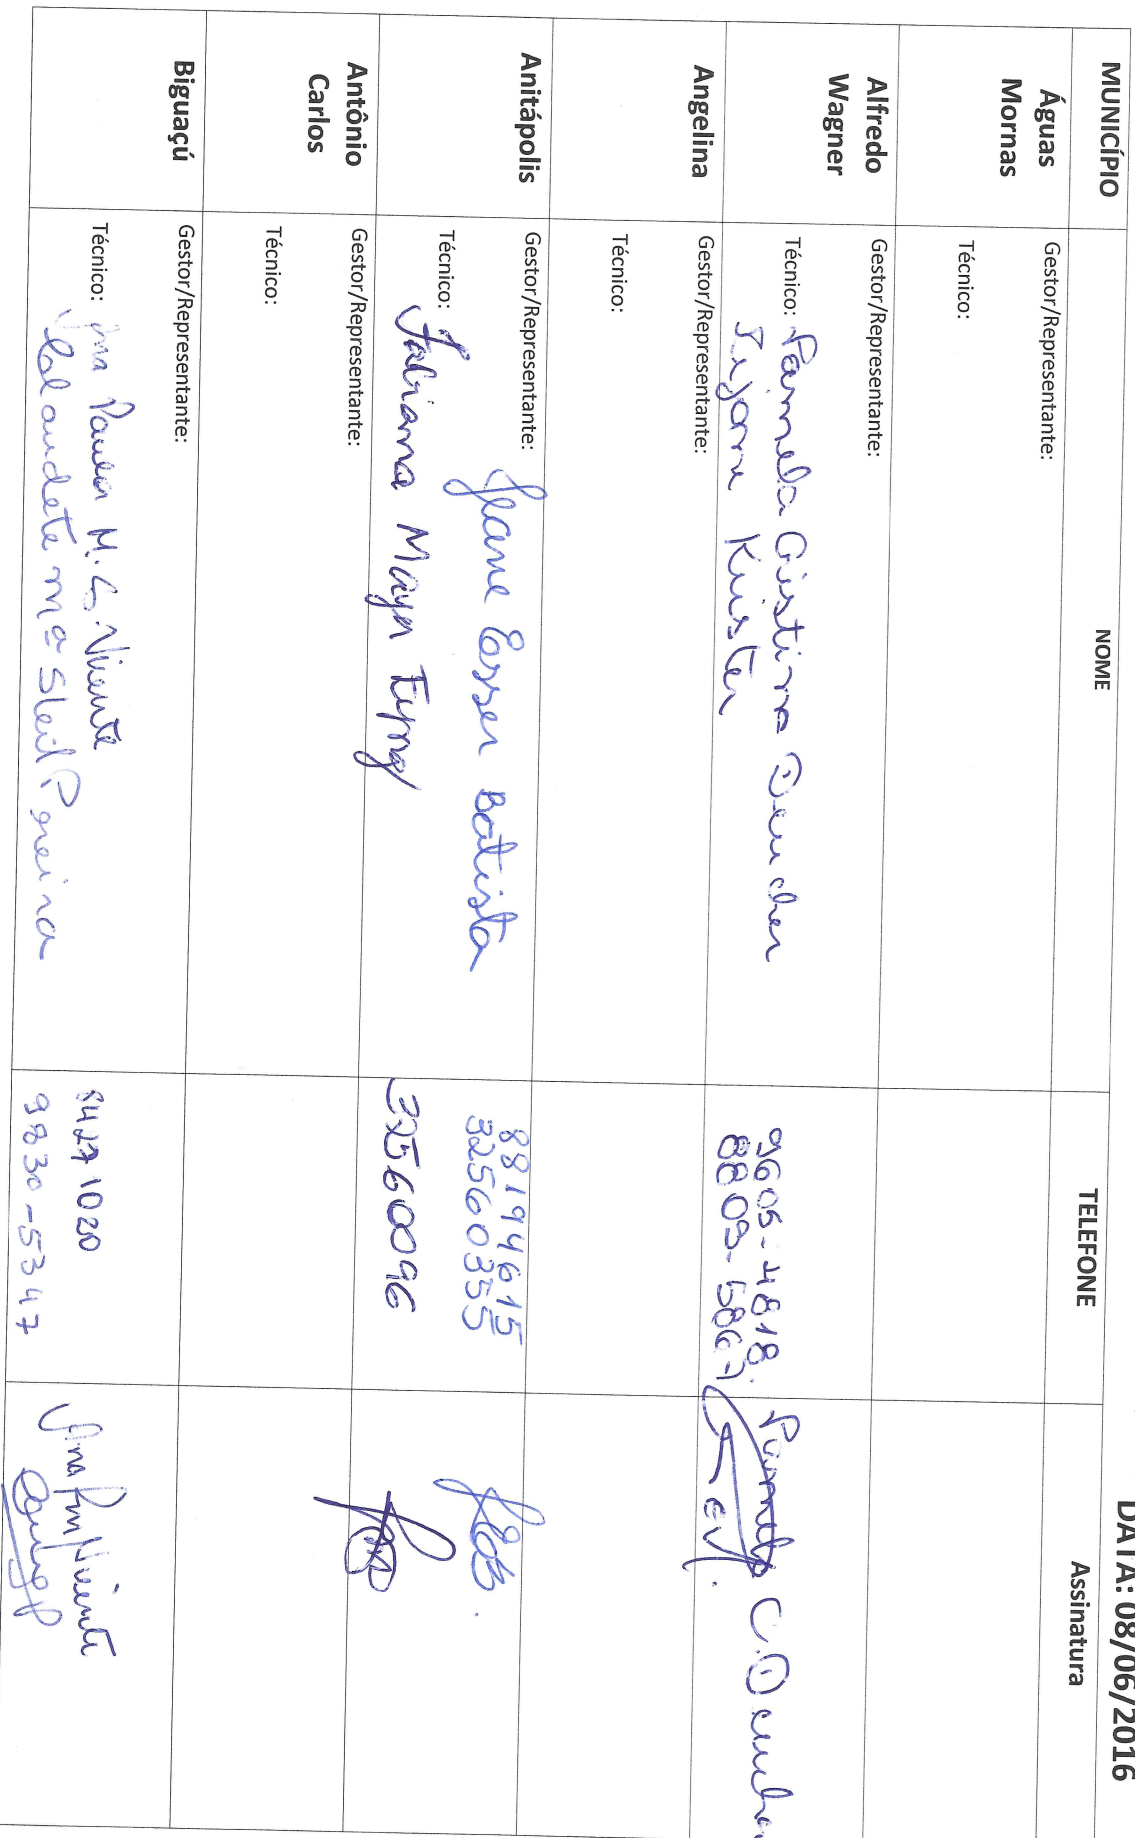 DATA: 08/06/2016
MUNICÍPIO NOME TELEFONE Assinatura
Águas Mornas
Gestor/Representante:
Técnico:
Alfredo Wagner
Gestor/Representante:
Técnico: Pâmela Cristina Deucher 9605-4818
Kuster 8809-5867
Angelina
Gestor/Representante:
Técnico:
Anitápolis
Gestor/Representante: Jeane Esser Batista 88194615
32560355
Técnico: Fabiana Mayn 32560096
Antônio Carlos
Gestor/Representante:
Técnico:
Biguaçú
Gestor/Representante:
Técnico: Ana Paula M. S. Vicente 8427 1020
Pereira 9830-5347